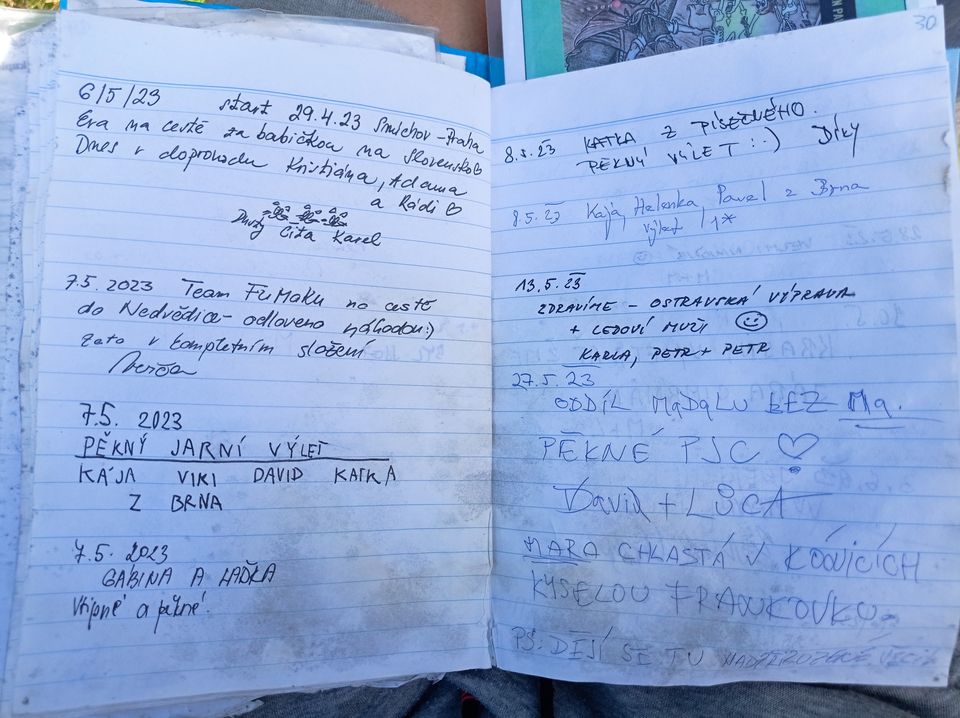 6/5/23 start 29.4.23 Smíchov - Praha
Eva na cestě za babičkou na Slovensko
Dnes v doprovodu Kristiána, Adama
a Rádi
Cita Karel
7.5. 2023 Team FuMaKu na cestě
do Nedvědice - odloveno náhodou :)
zato v kompletním složení
7.5. 2023
PĚKNÝ JARNÍ VÝLET
KÁJA VIKI DAVID KATKA
Z BRNA
7.5. 2023
GABINA A LAĎKA
Vtipné a pěkné.
30
8.5.23 KATKA Z PÍSEČNÉHO.
PĚKNÝ VÝLET :-) Díky
8.5.23 Kája, Helenka, Pavel z Brna
výlet 1*
13.5.23
ZDRAVÍME - OSTRAVSKÁ VÝPRAVA
+ LEDOVÍ MUŽI ☺
KARLA, PETR + PETR
27.5.23
ODDÍL MaDaLU bEZ Ma.
PĚKNÉ PJC ♡
David + LŮCA
MARA CHLASTÁ V
KYSELOU FRANKOVKU.
PS. DĚJÍ SE TU NADPŘIROZENÉ VĚCI